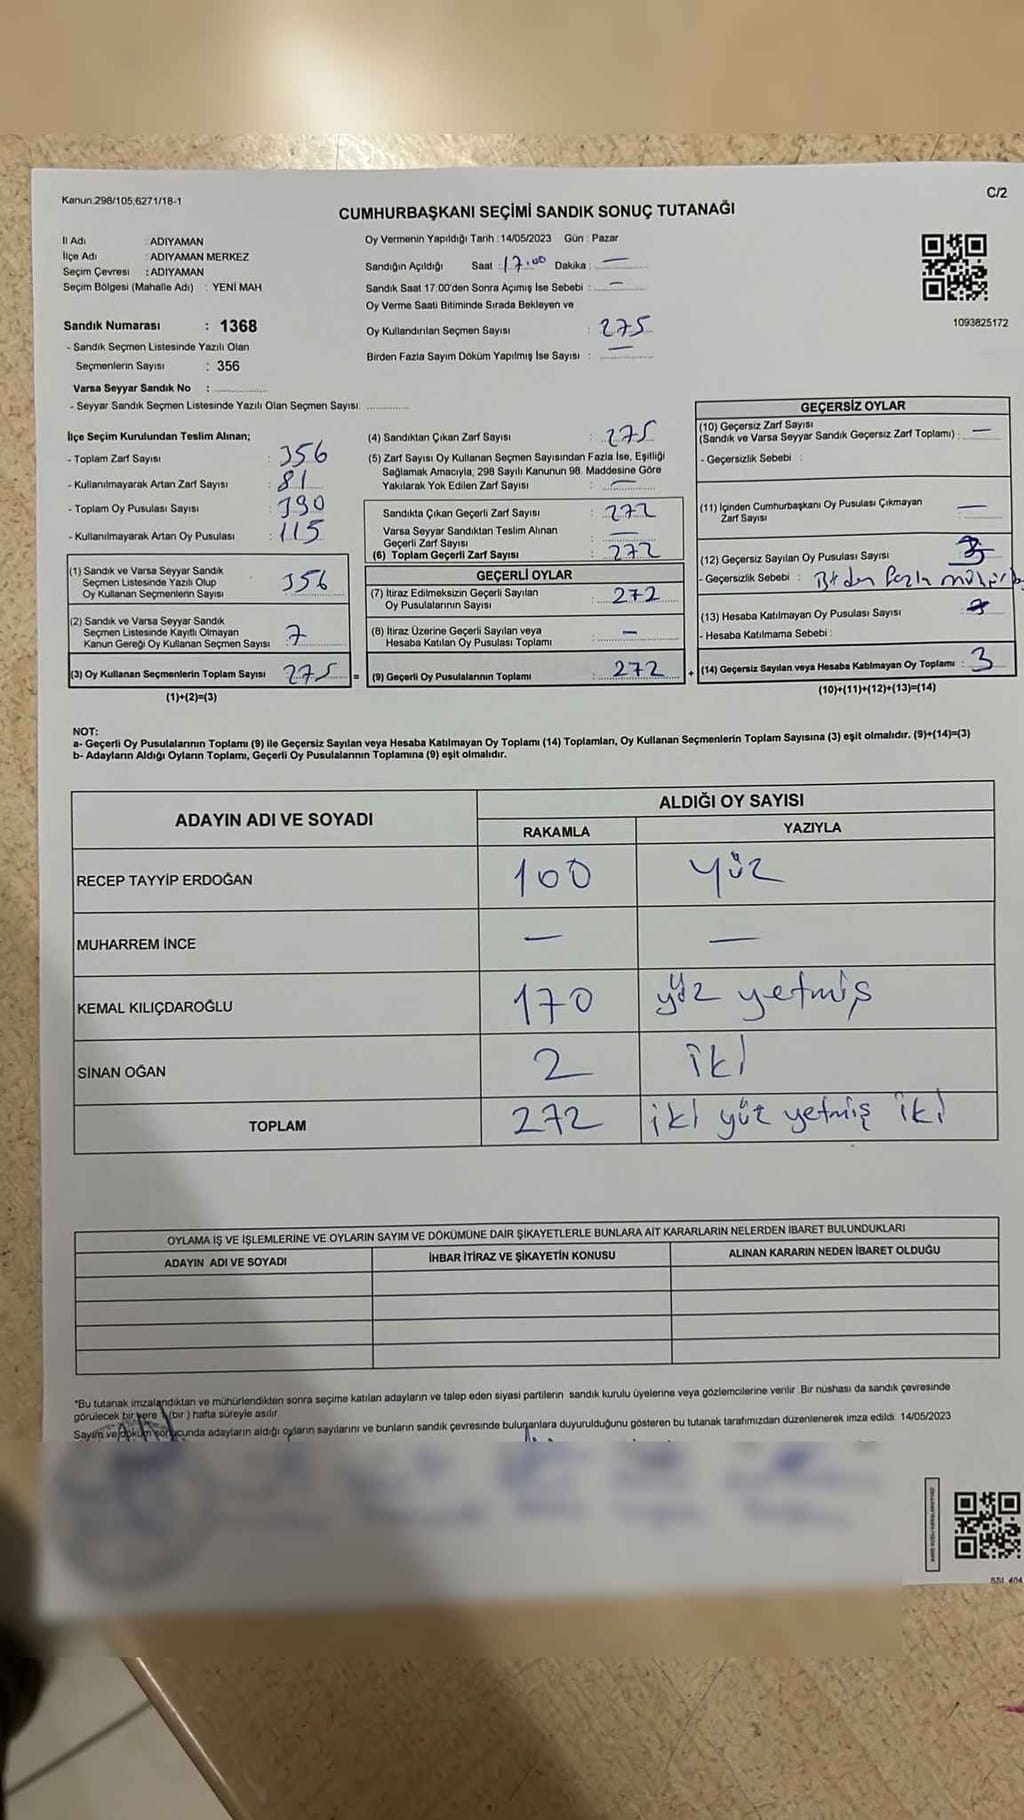 Kanun.298/105,6271/18-1
C/2
CUMHURBAŞKANI SEÇİMİ SANDIK SONUÇ TUTANAĞI
İl Adı : ADIYAMAN
İlçe Adı : ADIYAMAN MERKEZ
Seçim Çevresi : ADIYAMAN
Seçim Bölgesi (Mahalle Adı) : YENİ MAH
Sandık Numarası : 1368
- Sandık Seçmen Listesinde Yazılı Olan
Seçmenlerin Sayısı : 356
Varsa Seyyar Sandık No :
- Seyyar Sandık Seçmen Listesinde Yazılı Olan Seçmen Sayısı:
Oy Vermenin Yapıldığı Tarih : 14/05/2023 Gün : Pazar
Sandığın Açıldığı Saat : 17.00 Dakika : —
Sandık Saat 17:00'den Sonra Açımış İse Sebebi : —
Oy Verme Saati Bitiminde Sırada Bekleyen ve
Oy Kullandırılan Seçmen Sayısı : 275
Birden Fazla Sayım Döküm Yapılmış İse Sayısı : —
1093825172
İlçe Seçim Kurulundan Teslim Alınan;
- Toplam Zarf Sayısı : 356
- Kullanılmayarak Artan Zarf Sayısı : 81
- Toplam Oy Pusulası Sayısı : 390
- Kullanılmayarak Artan Oy Pusulası : 115
(1) Sandık ve Varsa Seyyar Sandık
Seçmen Listesinde Yazılı Olup
Oy Kullanan Seçmenlerin Sayısı 356
(2) Sandık ve Varsa Seyyar Sandık
Seçmen Listesinde Kayıtlı Olmayan
Kanun Gereği Oy Kullanan Seçmen Sayısı 7
(3) Oy Kullanan Seçmenlerin Toplam Sayısı 275 =
(1)+(2)=(3)
(4) Sandıktan Çıkan Zarf Sayısı : 275
(5) Zarf Sayısı Oy Kullanan Seçmen Sayısından Fazla İse, Eşitliği
Sağlamak Amacıyla; 298 Sayılı Kanunun 98. Maddesine Göre
Yakılarak Yok Edilen Zarf Sayısı : —
Sandıkta Çıkan Geçerli Zarf Sayısı : 272
Varsa Seyyar Sandıktan Teslim Alınan
Geçerli Zarf Sayısı : —
(6) Toplam Geçerli Zarf Sayısı : 272
GEÇERLİ OYLAR
(7) İtiraz Edilmeksizin Geçerli Sayılan
Oy Pusulalarının Sayısı : 272
(8) İtiraz Üzerine Geçerli Sayılan veya
Hesaba Katılan Oy Pusulası Toplamı : —
(9) Geçerli Oy Pusulalarının Toplamı : 272 +
GEÇERSİZ OYLAR
(10) Geçersiz Zarf Sayısı
(Sandık ve Varsa Seyyar Sandık Geçersiz Zarf Toplamı) : —
- Geçersizlik Sebebi :
(11) İçinden Cumhurbaşkanı Oy Pusulası Çıkmayan
Zarf Sayısı : —
(12) Geçersiz Sayılan Oy Pusulası Sayısı : 3
- Geçersizlik Sebebi : Birden Fazla
(13) Hesaba Katılmayan Oy Pusulası Sayısı :
- Hesaba Katılmama Sebebi :
(14) Geçersiz Sayılan veya Hesaba Katılmayan Oy Toplamı : 3
(10)+(11)+(12)+(13)=(14)
NOT:
a- Geçerli Oy Pusulalarının Toplamı (9) ile Geçersiz Sayılan veya Hesaba Katılmayan Oy Toplamı (14) Toplamları, Oy Kullanan Seçmenlerin Toplam Sayısına (3) eşit olmalıdır. (9)+(14)=(3)
b- Adayların Aldığı Oyların Toplamı, Geçerli Oy Pusulalarının Toplamına (9) eşit olmalıdır.
ADAYIN ADI VE SOYADI
ALDIĞI OY SAYISI
RAKAMLA YAZIYLA
RECEP TAYYİP ERDOĞAN 100 yüz
MUHARREM İNCE — —
KEMAL KILIÇDAROĞLU 170 yüz yetmiş
SİNAN OĞAN 2 iki
TOPLAM 272 iki yüz yetmiş iki
OYLAMA İŞ VE İŞLEMLERİNE VE OYLARIN SAYIM VE DÖKÜMÜNE DAİR ŞİKAYETLERLE BUNLARA AİT KARARLARIN NELERDEN İBARET BULUNDUKLARI
ADAYIN ADI VE SOYADI İHBAR İTİRAZ VE ŞİKAYETİN KONUSU ALINAN KARARIN NEDEN İBARET OLDUĞU
*Bu tutanak imzalandıktan ve mühürlendikten sonra seçime katılan adayların ve talep eden siyasi partilerin sandık kurulu üyelerine veya gözlemcilerine verilir. Bir nüshası da sandık çevresinde
görülecek bir yere 1 (bir ) hafta süreyle asılır
Sayım ve döküm sonucunda adayların aldığı oyların sayılarını ve bunların sandık çevresinde bulunanlara duyurulduğunu gösteren bu tutanak tarafımızdan düzenlenerek imza edildi. 14/05/2023